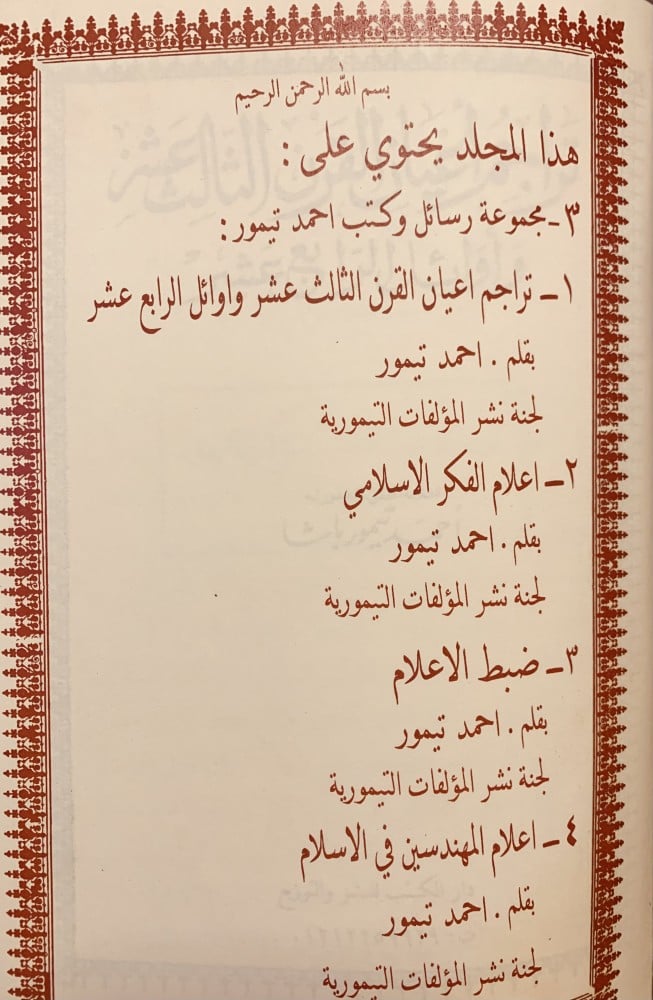 بسم الله الرحمن الرحيم
هذا المجلد يحتوي على :
٣ـ مجموعة رسائل وكتب احمد تيمور :
١ـ تراجم اعيان القرن الثالث عشر واوائل الرابع عشر
بقلم . احمد تيمور
لجنة نشر المؤلفات التيمورية
٢ـ اعلام الفكر الاسلامي
بقلم . احمد تيمور
لجنة نشر المؤلفات التيمورية
٣ـ ضبط الاعلام
بقلم . احمد تيمور
لجنة نشر المؤلفات التيمورية
٤ـ اعلام المهندسين في الاسلام
بقلم . احمد تيمور
لجنة نشر المؤلفات التيمورية